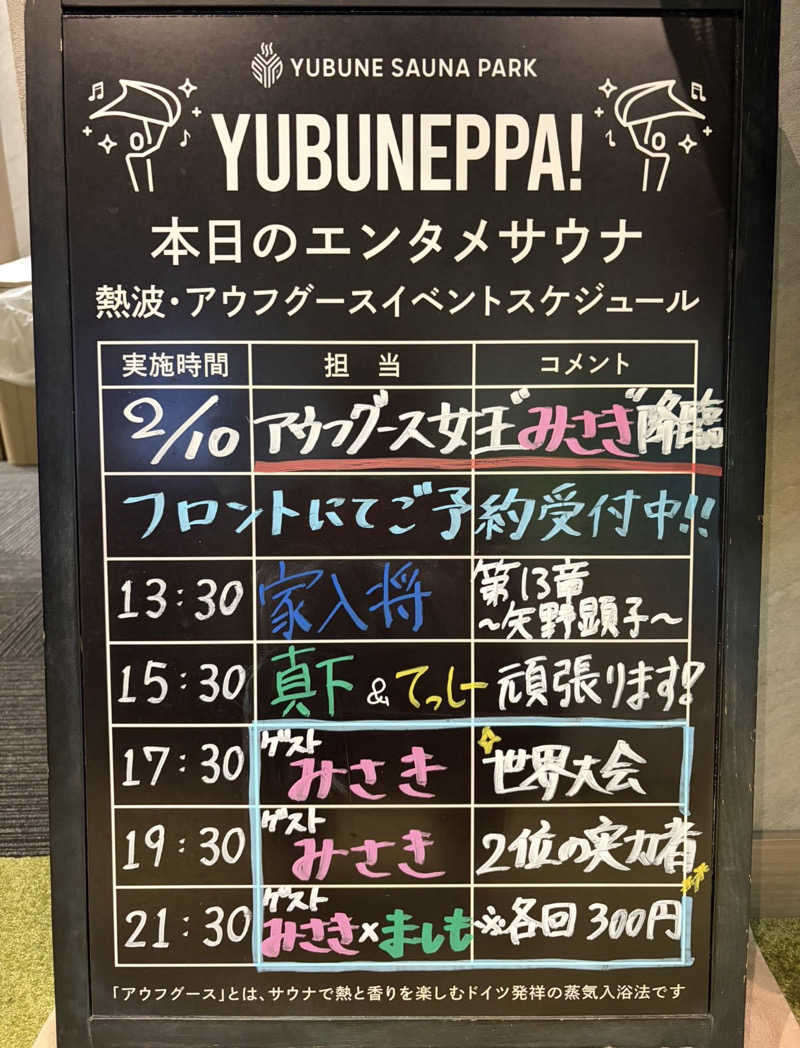 YUBUNE SAUNA PARK
YUBUNEPPA!
本日のエンタメサウナ
熱波・アウフグースイベントスケジュール
実施時間 担当 コメント
2/10 アウフグース女王"みさき"降臨
フロントにてご予約受付中!!
13:30 家入将 第13章
~矢野顕子~
15:30 真下 & てっしー 頑張ります!
17:30 ゲスト みさき 世界大会
19:30 ゲスト みさき 2位の実力者
21:30 ゲスト みさき×ましも ※各回300円
「アウフグース」とは、サウナで熱と香りを楽しむドイツ発祥の蒸気入浴法です